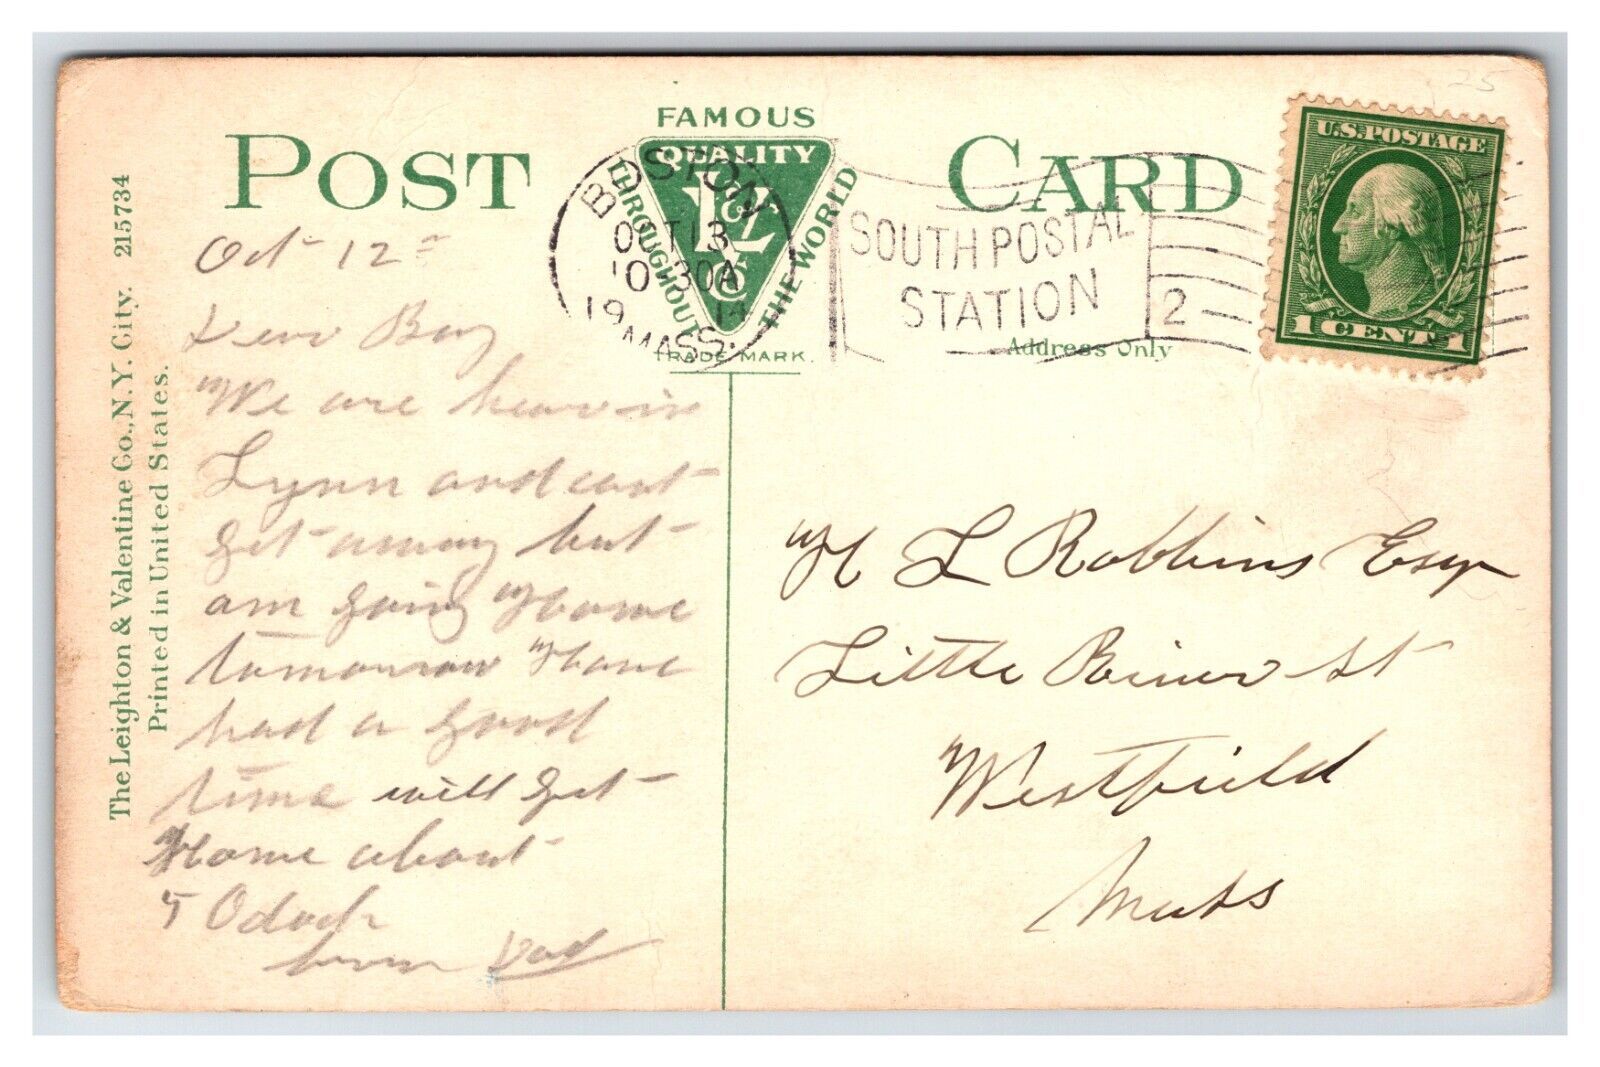 POST CARD
FAMOUS
QUALITY
L&V Co
THROUGHOUT THE WORLD
TRADE MARK.
Address Only
BOSTON
OCT 13
10-30A
1914
MASS.
SOUTH POSTAL
STATION
2
U.S. POSTAGE
1 CENT 1
25
The Leighton & Valentine Co., N.Y. City. 215734
Printed in United States.
Oct 12=
Dear Boy
We are hear in
Lynn and cant
get away but
am going Home
tomorrow Have
had a good
time will get
Home about
5 Oclock
Dad
H L Robbins Esqr
Little River St
Westfield
Mass